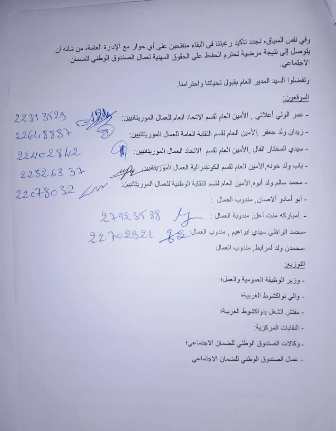 وفي نفس السياق، نجدد تأكيد رغبتنا في البقاء منفتحين على أي حوار مع الإدارة العامة، من شأنه أن
يتوصل إلى نتيجة مرضية تحترم الحفاظ على الحقوق المهنية لعمال الصندوق الوطني للضمان
الاجتماعي.
وتفضلوا السيد المدير العام بقبول تحياتنا واحترامنا.
الموقعون:
- عمر الولي ، الأمين العام لقسم الاتحاد العام للعمال الموريتانيين:
- زيدان ولد جعفر ،الأمين العام لقسم النقابة العامة للعمال الموريتانيين: 22648887
- سيدي المختار الفال ،الأمين العام لقسم الاتحاد العمال الموريتانيين: 22402842
- باب ولد خونه،الأمين العام لقسم لكونفدرالية العمال الموريتانيين:
- محمد سالم ولد أبوه الأمين العام لقسم النقابة الوطنية للعمال الموريتانيين: 22078032
- ابو أمادو الحسان، مندوب العمال :
- امباركه منت أعل، مندوبة العمال : 27923538
-محمد الراظي سيدي ابراهيم ، مندوب العمال: 22702921
-محمدن ولد لمرابط، مندوب العمال:
التوزيع:
- وزير الوظيفة العمومية والعمل؛
- والي نواكشوط الغربية؛
- مفتش الشغل بنواكشوط الغربية؛
- النقابات المركزية؛
- وكالات الصندوق الوطني للضمان الاجتماعي؛
- عمال الصندوق الوطني للضمان الاجتماعي